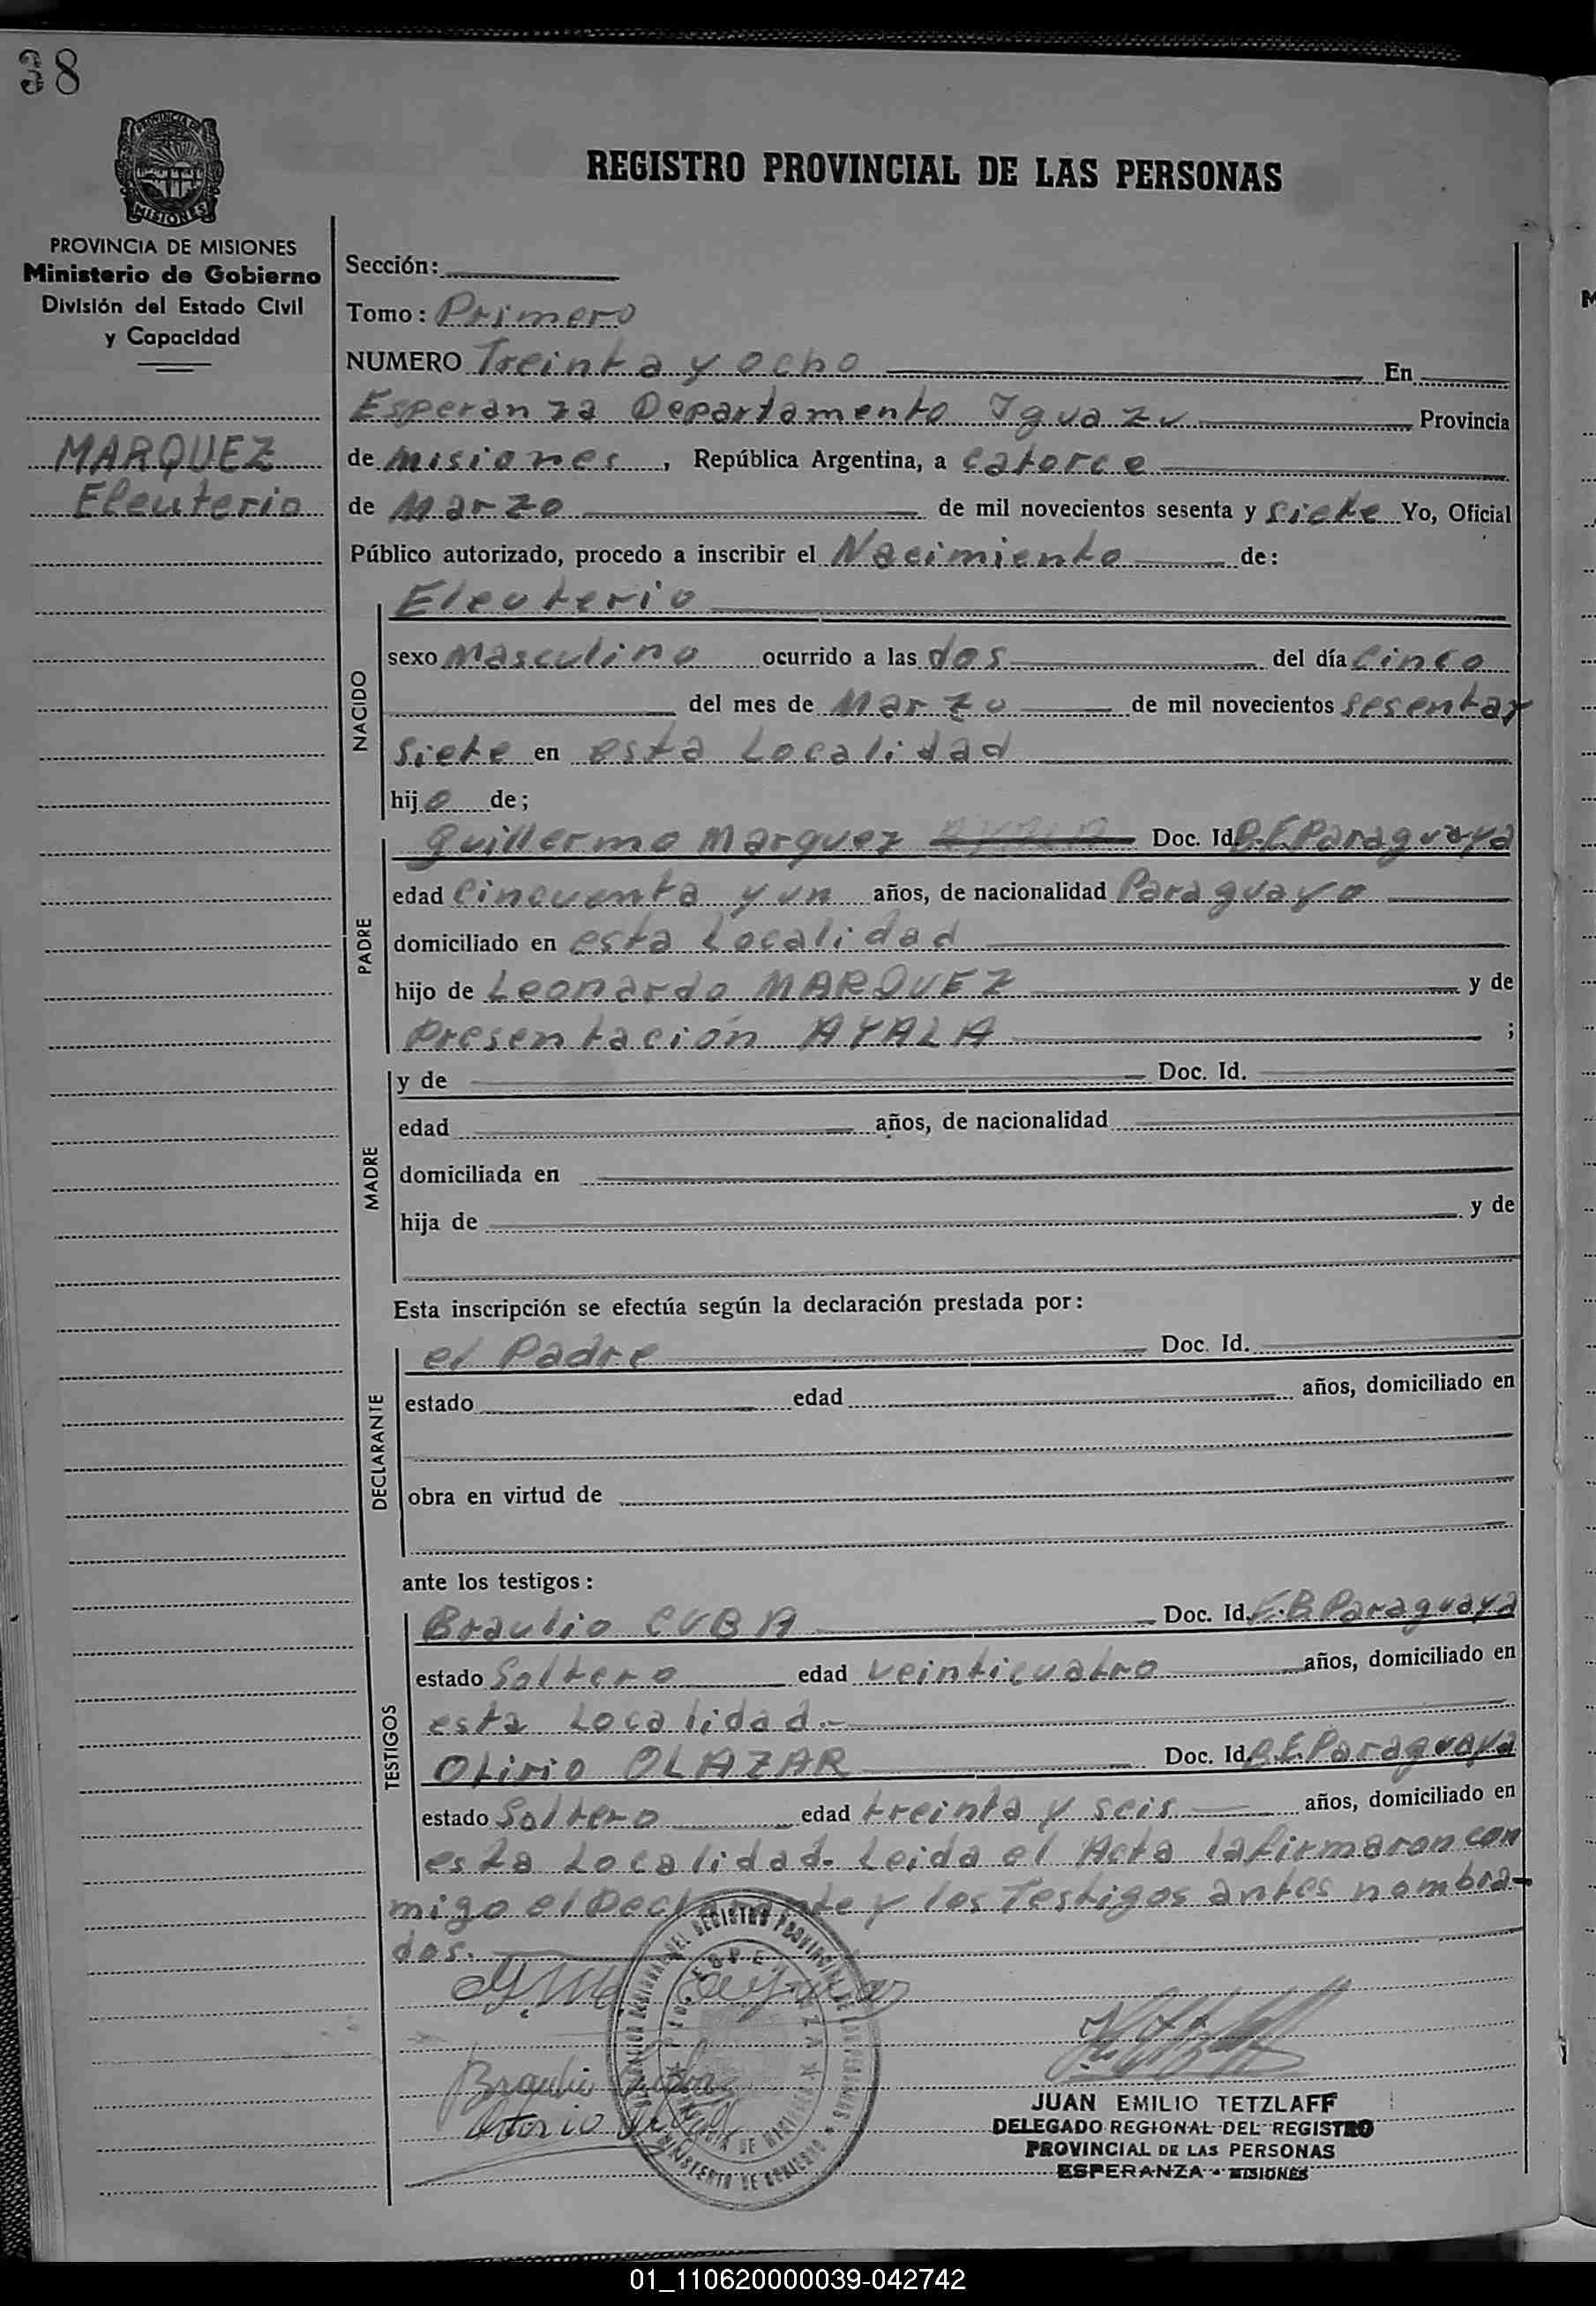 38
PROVINCIA DE
MISIONES
REGISTRO PROVINCIAL DE LAS PERSONAS
PROVINCIA DE MISIONES
Ministerio de Gobierno
División del Estado Civil
y Capacidad
MARQUEZ
Eleuterio
Sección:
Tomo: Primero
NUMERO Treinta y ocho En
Esperanza Departamento Iguazu Provincia
de Misiones, República Argentina, a catorce
de Marzo de mil novecientos sesenta y siete Yo, Oficial
Público autorizado, procedo a inscribir el Nacimiento de:
NACIDO
Eleuterio
sexo Masculino ocurrido a las dos del día Cinco
del mes de Marzo de mil novecientos sesenta y
siete en esta Localidad
hijo de;
PADRE
Guillermo Marquez AYALA Doc. Id. B.E Paraguaya
edad Cincuenta y un años, de nacionalidad Paraguayo
domiciliado en esta Localidad
hijo de Leonardo MARQUEZ y de
Presentación AYALA ;
MADRE
y de Doc. Id.
edad años, de nacionalidad
domiciliada en
hija de y de
Esta inscripción se efectúa según la declaración prestada por:
DECLARANTE
el Padre Doc. Id.
estado edad años, domiciliado en
obra en virtud de
ante los testigos:
TESTIGOS
Braulio CUBA Doc. Id. E.B. Paraguaya
estado Soltero edad veinticuatro años, domiciliado en
esta Localidad.-
Otirio OLAZAR Doc. Id. B.E. Paraguaya
estado Soltero edad treinta y seis años, domiciliado en
esta Localidad. Leida el Acta la firmaron con
migo el Declarante y los Testigos antes nombra-
dos.
Braulio Cuba
JUAN EMILIO TETZLAFF
DELEGADO REGIONAL DEL REGISTRO
PROVINCIAL DE LAS PERSONAS
ESPERANZA - MISIONES
01_110620000039-042742